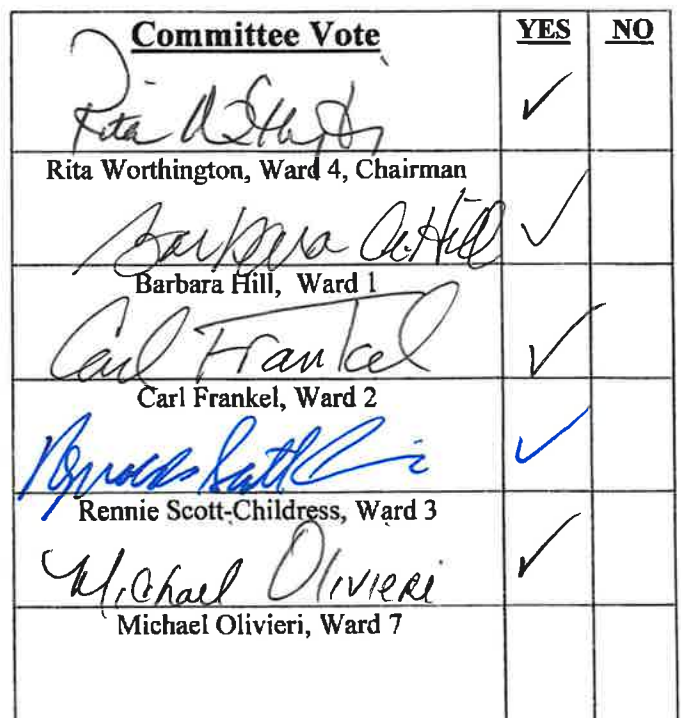 Committee Vote YES NO
✓
Rita Worthington, Ward 4, Chairman
Barbara A. Hill ✓
Barbara Hill, Ward 1
Carl Frankel ✓
Carl Frankel, Ward 2
Reynolds Scott ✓
Rennie Scott-Childress, Ward 3
Michael Olivieri ✓
Michael Olivieri, Ward 7